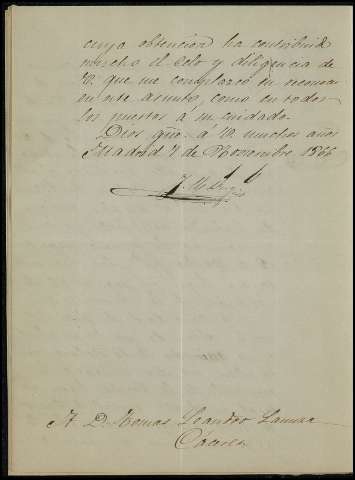 cuya obtencion ha contribuido
mucho el celo y diligencia de
V. que me complazco en reconocer
en este asunto, como en todos
los puestos a su cuidado.
Dios güe. á V. muchos años
Madrid 7 de Noviembre 1866
A D. Tomas Leandro
Cáceres